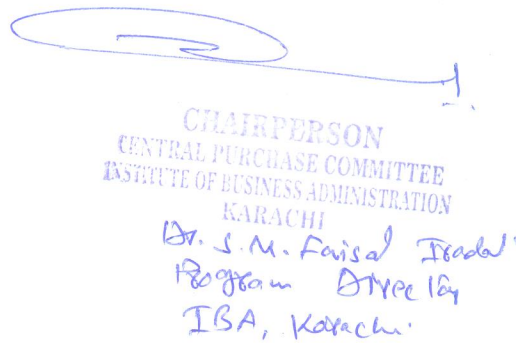 CHAIRPERSON
CENTRAL PURCHASE COMMITTEE
INSTITUTE OF BUSINESS ADMINISTRATION
KARACHI
Dr. S. M. Faisal Iradat
Program Director
IBA, Karachi.